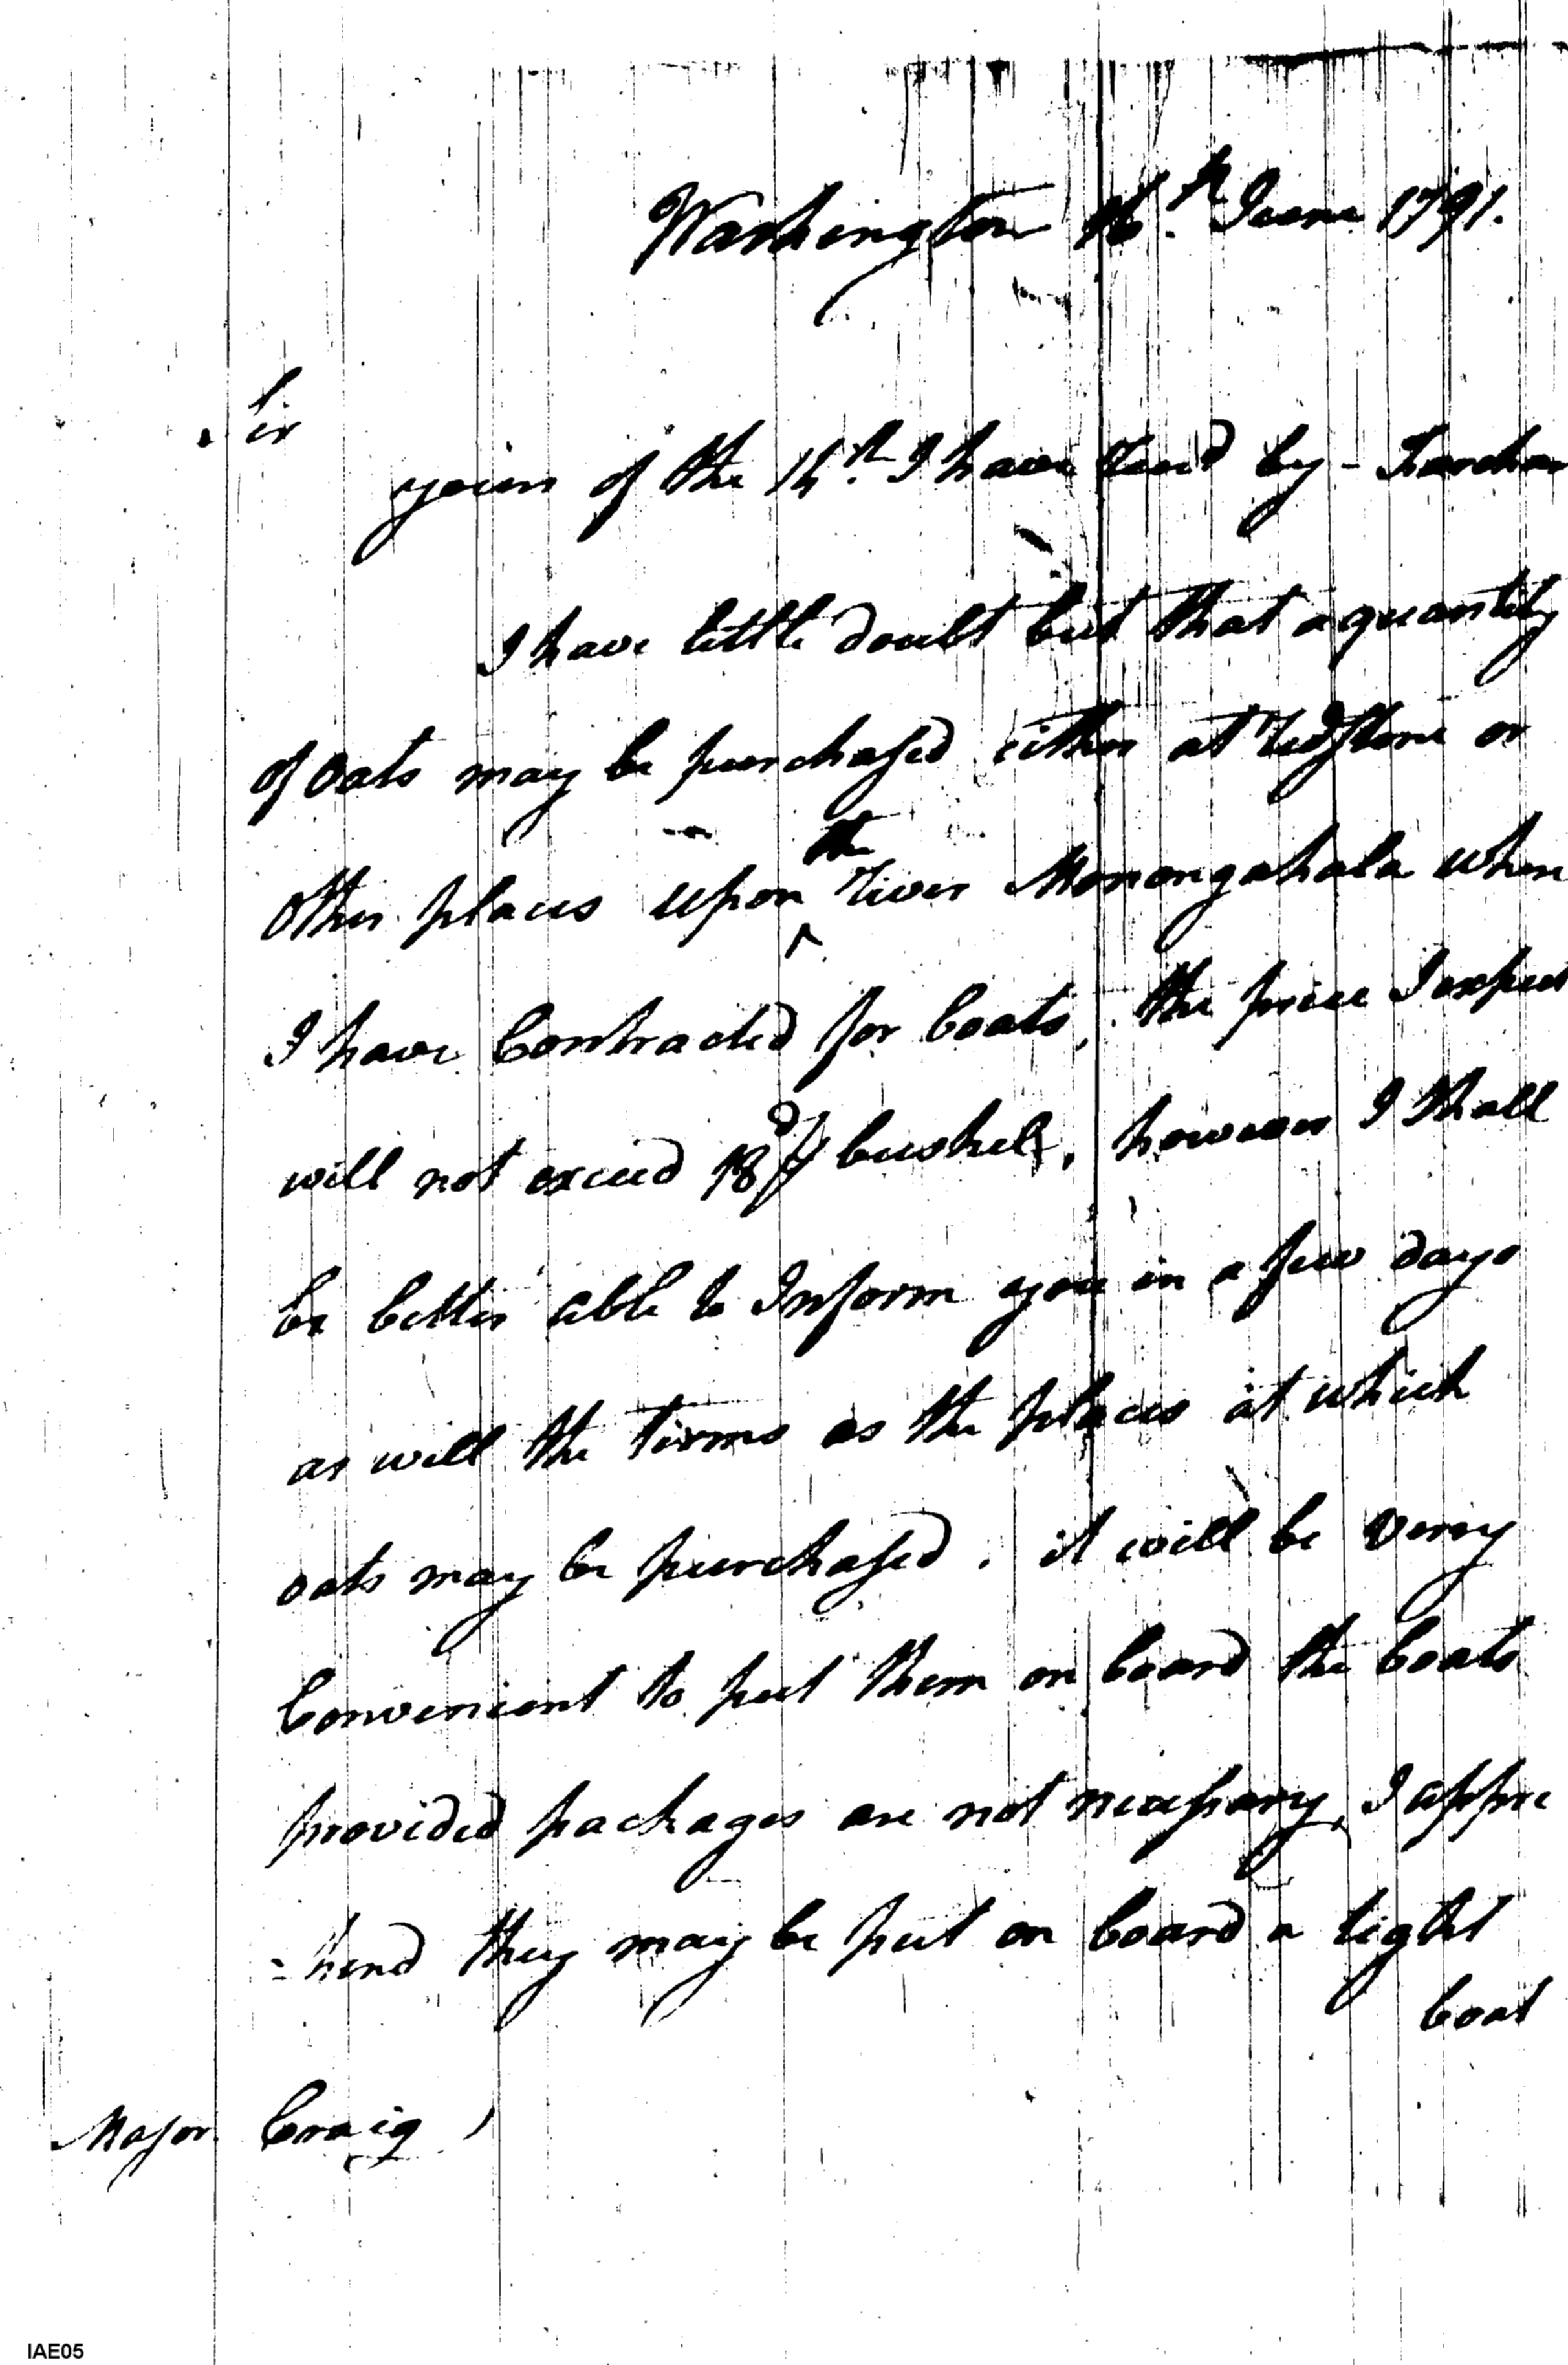 Washington 16.th June 1791.
Sir
yours of the 14.th I have Recd by
I have little doubt but that a quantity
of oats may be purchased either at Redstone or
other places upon the River Monongahala when
I have Contracted for boats, the price I expect
will not exceed 18d ⅌ bushel, however I shall
be better able to Inform you in a few days
as well the terms as the places at which
oats may be purchased. it will be verry
Convenient to put them on board the boats
provided packages are not necessary, I appre
=hend they may be put on board a tight
boat
Major Craig
IAE05